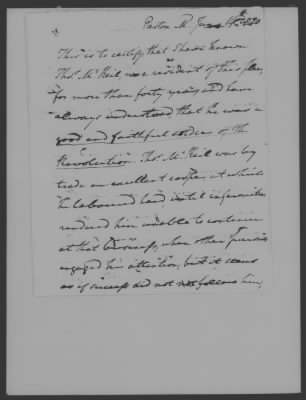 Easton M June 14th 1820
This is to certify that I have known
Thos. McKeil, now a resident of this place,
for more than forty years and have
always understood that he was a
good and faithful soldier of the
Revolution. Thos. McKeil was by
trade an excellent cooper, at which
he laboured hard until infirmities
rendered him unable to continue
at that business, when other pursuits
engaged his attention, but it seems
as if success did not follow him,